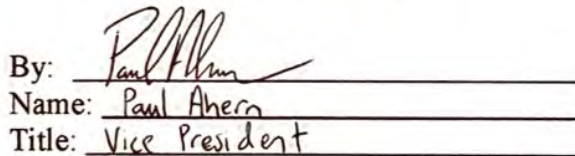 By: Paul Ahern
Name: Paul Ahern
Title: Vice President